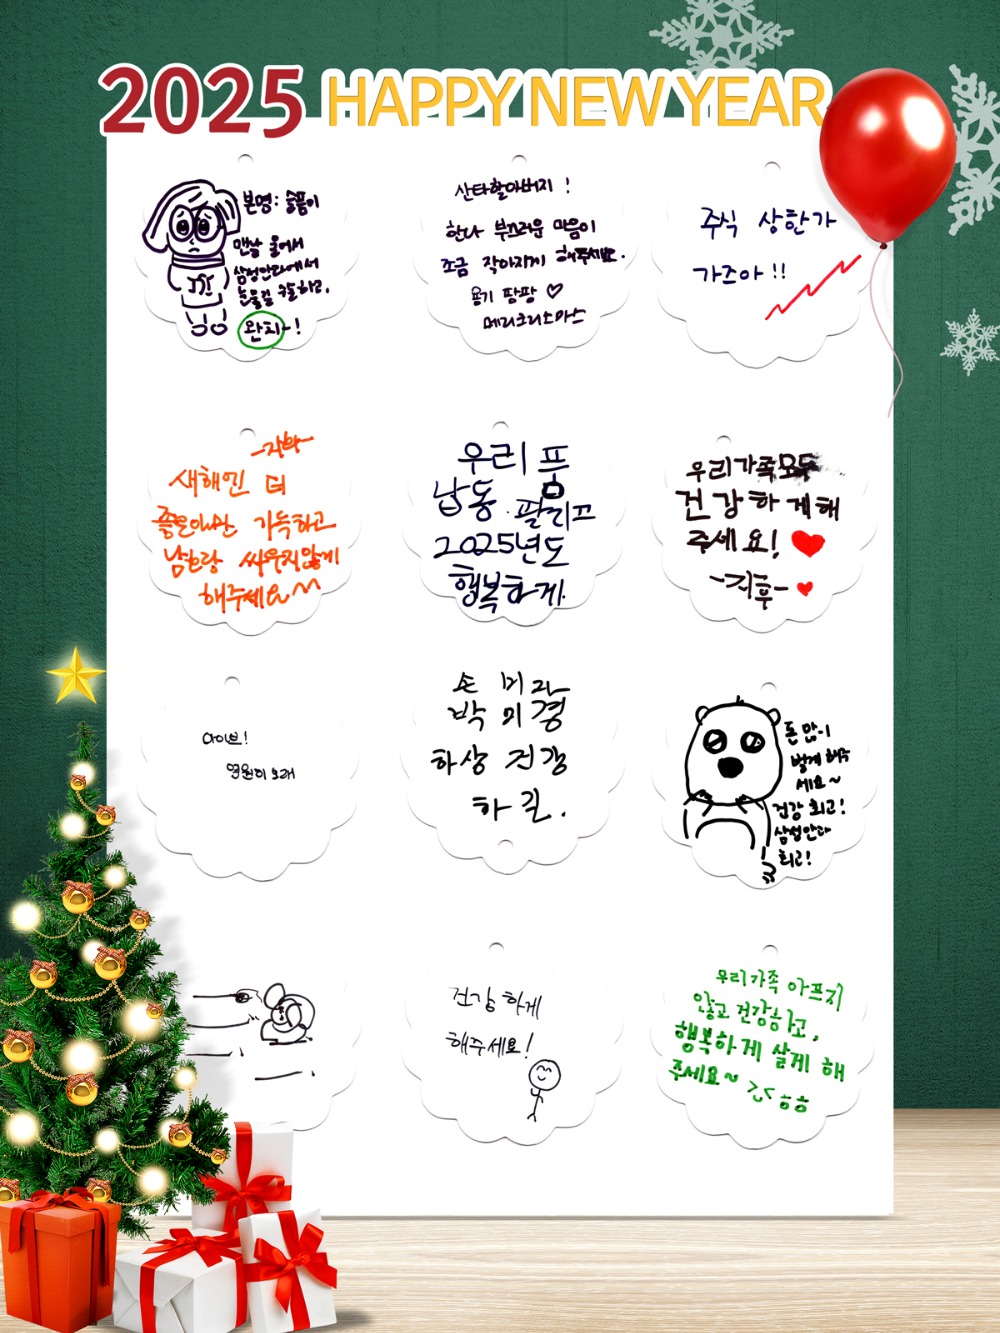 2025 HAPPY NEW YEAR
본명: 슬픔이
맨날 울어서
삼성안과에서
눈물길 수술하고,
완치~!
산타할아버지 !
한나 부끄러운 마음이
조금 작아지게 해주세요.
용기 팡팡 ♡
메리크리스마스
주식 상한가
가즈아 !!
새해엔 더
좋은일만 가득하고
남편이랑 싸우지않게
해주세요
우리 품
납동
2025년도
행복하게
우리가족모두
건강하게해
주세요! ♥
-지후- ♥
아이브!
영원히 노래
손 미라
박 미경
하상 건강
하길.
돈 많이
벌게 해주
세요~
건강 최고!
삼성안과
최고!
건강하게
해주세요!
우리가족 아프지
않고 건강하고,
행복하게 살게 해
주세요~ ㅎㅎ